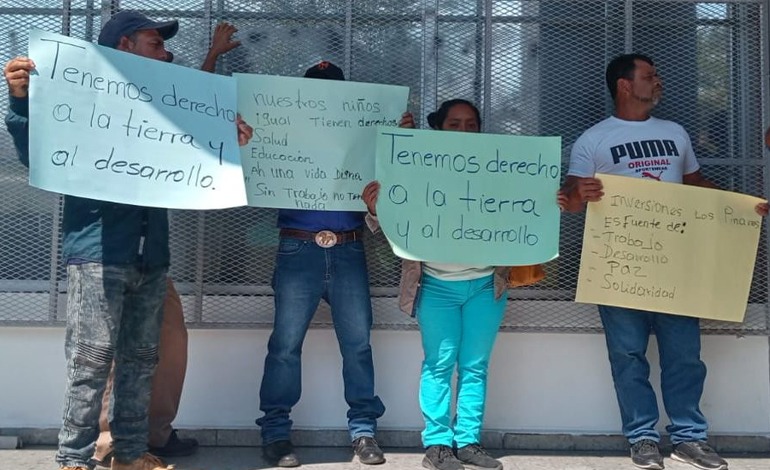 Tenemos derecho
a la tierra y
al desarrollo.
nuestros niños
igual Tienen derechos
Salud
Educación
Sin Trabajo no
nada
Tenemos derecho
a la tierra
y al desarrollo
PUMA
ORIGINAL
SPORTSWEAR
Inversiones Los Pinares
Es Fuente de:
- Trabajo
- Desarrollo
- Paz
- Solidaridad